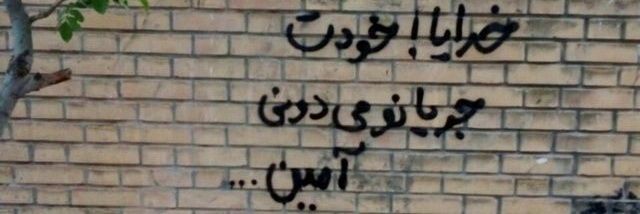 خدایا! خودت
جریانو می دونی
آمین...